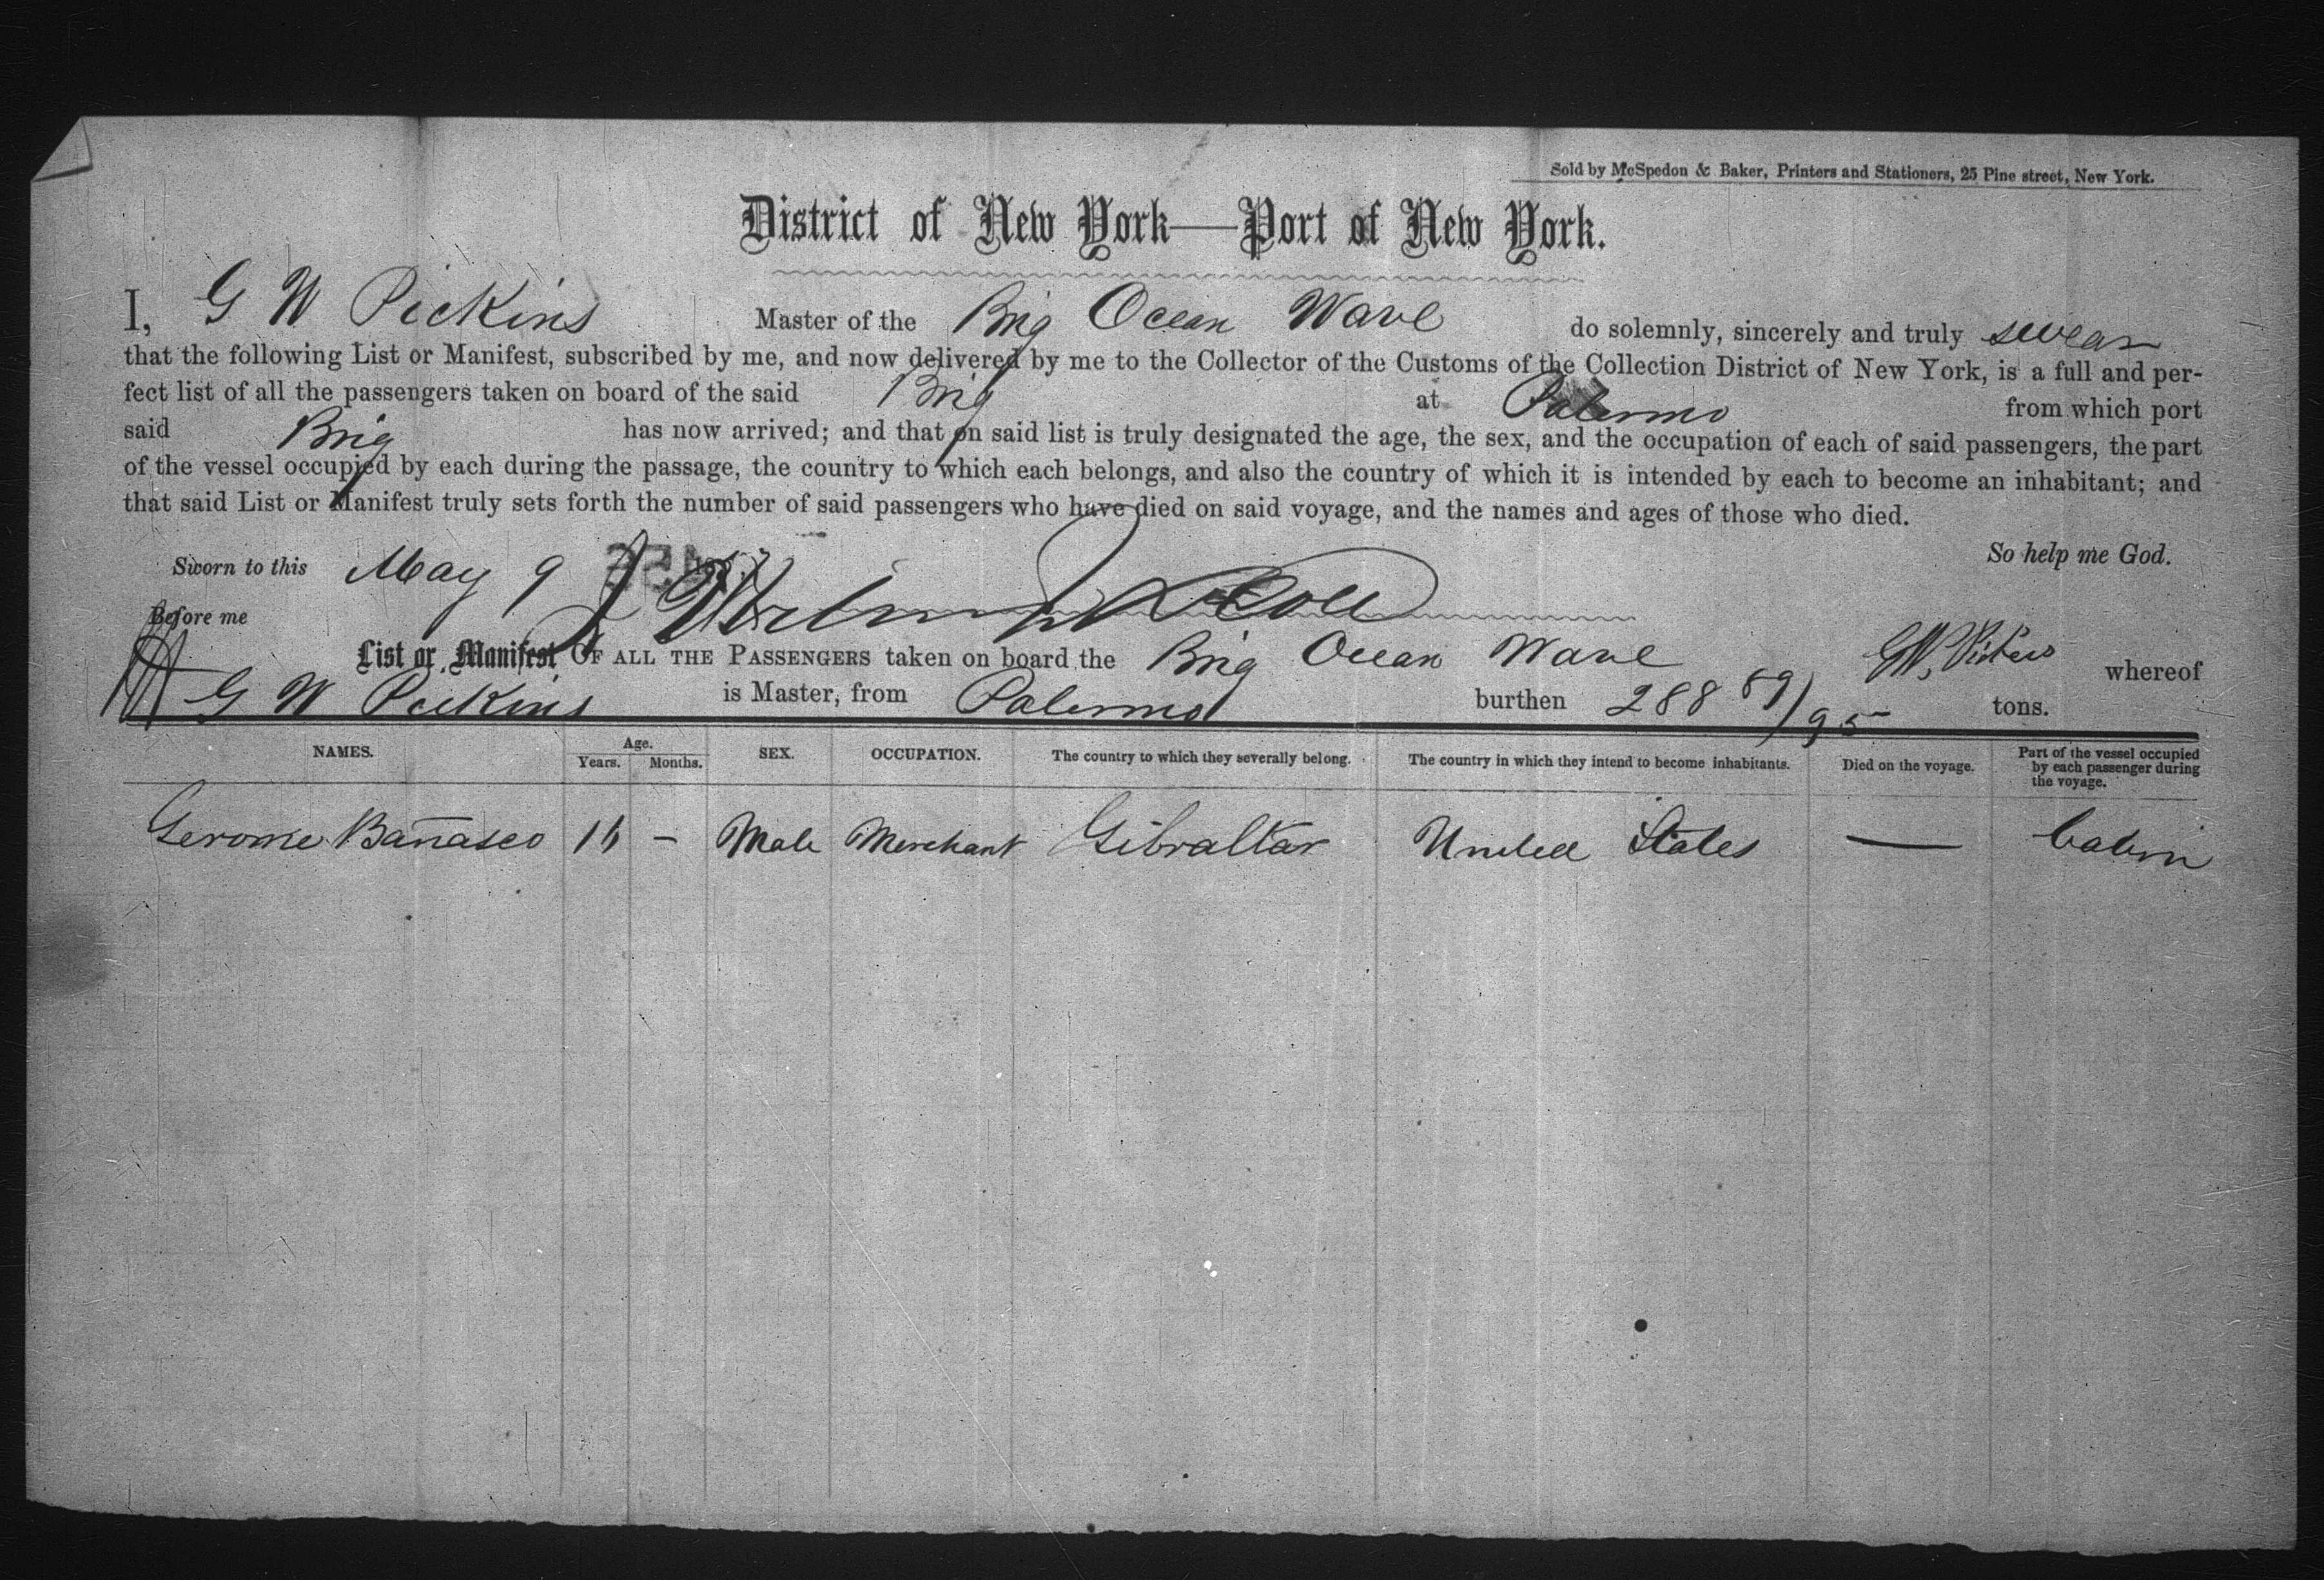 Sold by McSpedon & Baker, Printers and Stationers, 25 Pine street, New York.
District of New York—Port of New York.
I, G W Pickins Master of the Brig Ocean Wave do solemnly, sincerely and truly swear
that the following List or Manifest, subscribed by me, and now delivered by me to the Collector of the Customs of the Collection District of New York, is a full and per-
fect list of all the passengers taken on board of the said Brig at Palermo from which port
said Brig has now arrived; and that on said list is truly designated the age, the sex, and the occupation of each of said passengers, the part
of the vessel occupied by each during the passage, the country to which each belongs, and also the country of which it is intended by each to become an inhabitant; and
that said List or Manifest truly sets forth the number of said passengers who have died on said voyage, and the names and ages of those who died.
So help me God.
Sworn to this May 9
Before me
List or Manifest OF ALL THE PASSENGERS taken on board the Brig Ocean Wave whereof
G W Pickins is Master, from Palermo burthen 288 89/95 tons.
NAMES. Age. Years. Months. SEX. OCCUPATION. The country to which they severally belong. The country in which they intend to become inhabitants. Died on the voyage. Part of the vessel occupied by each passenger during the voyage.
Gerome Bañasco 16 – Male Merchant Gibraltar United States — Cabin